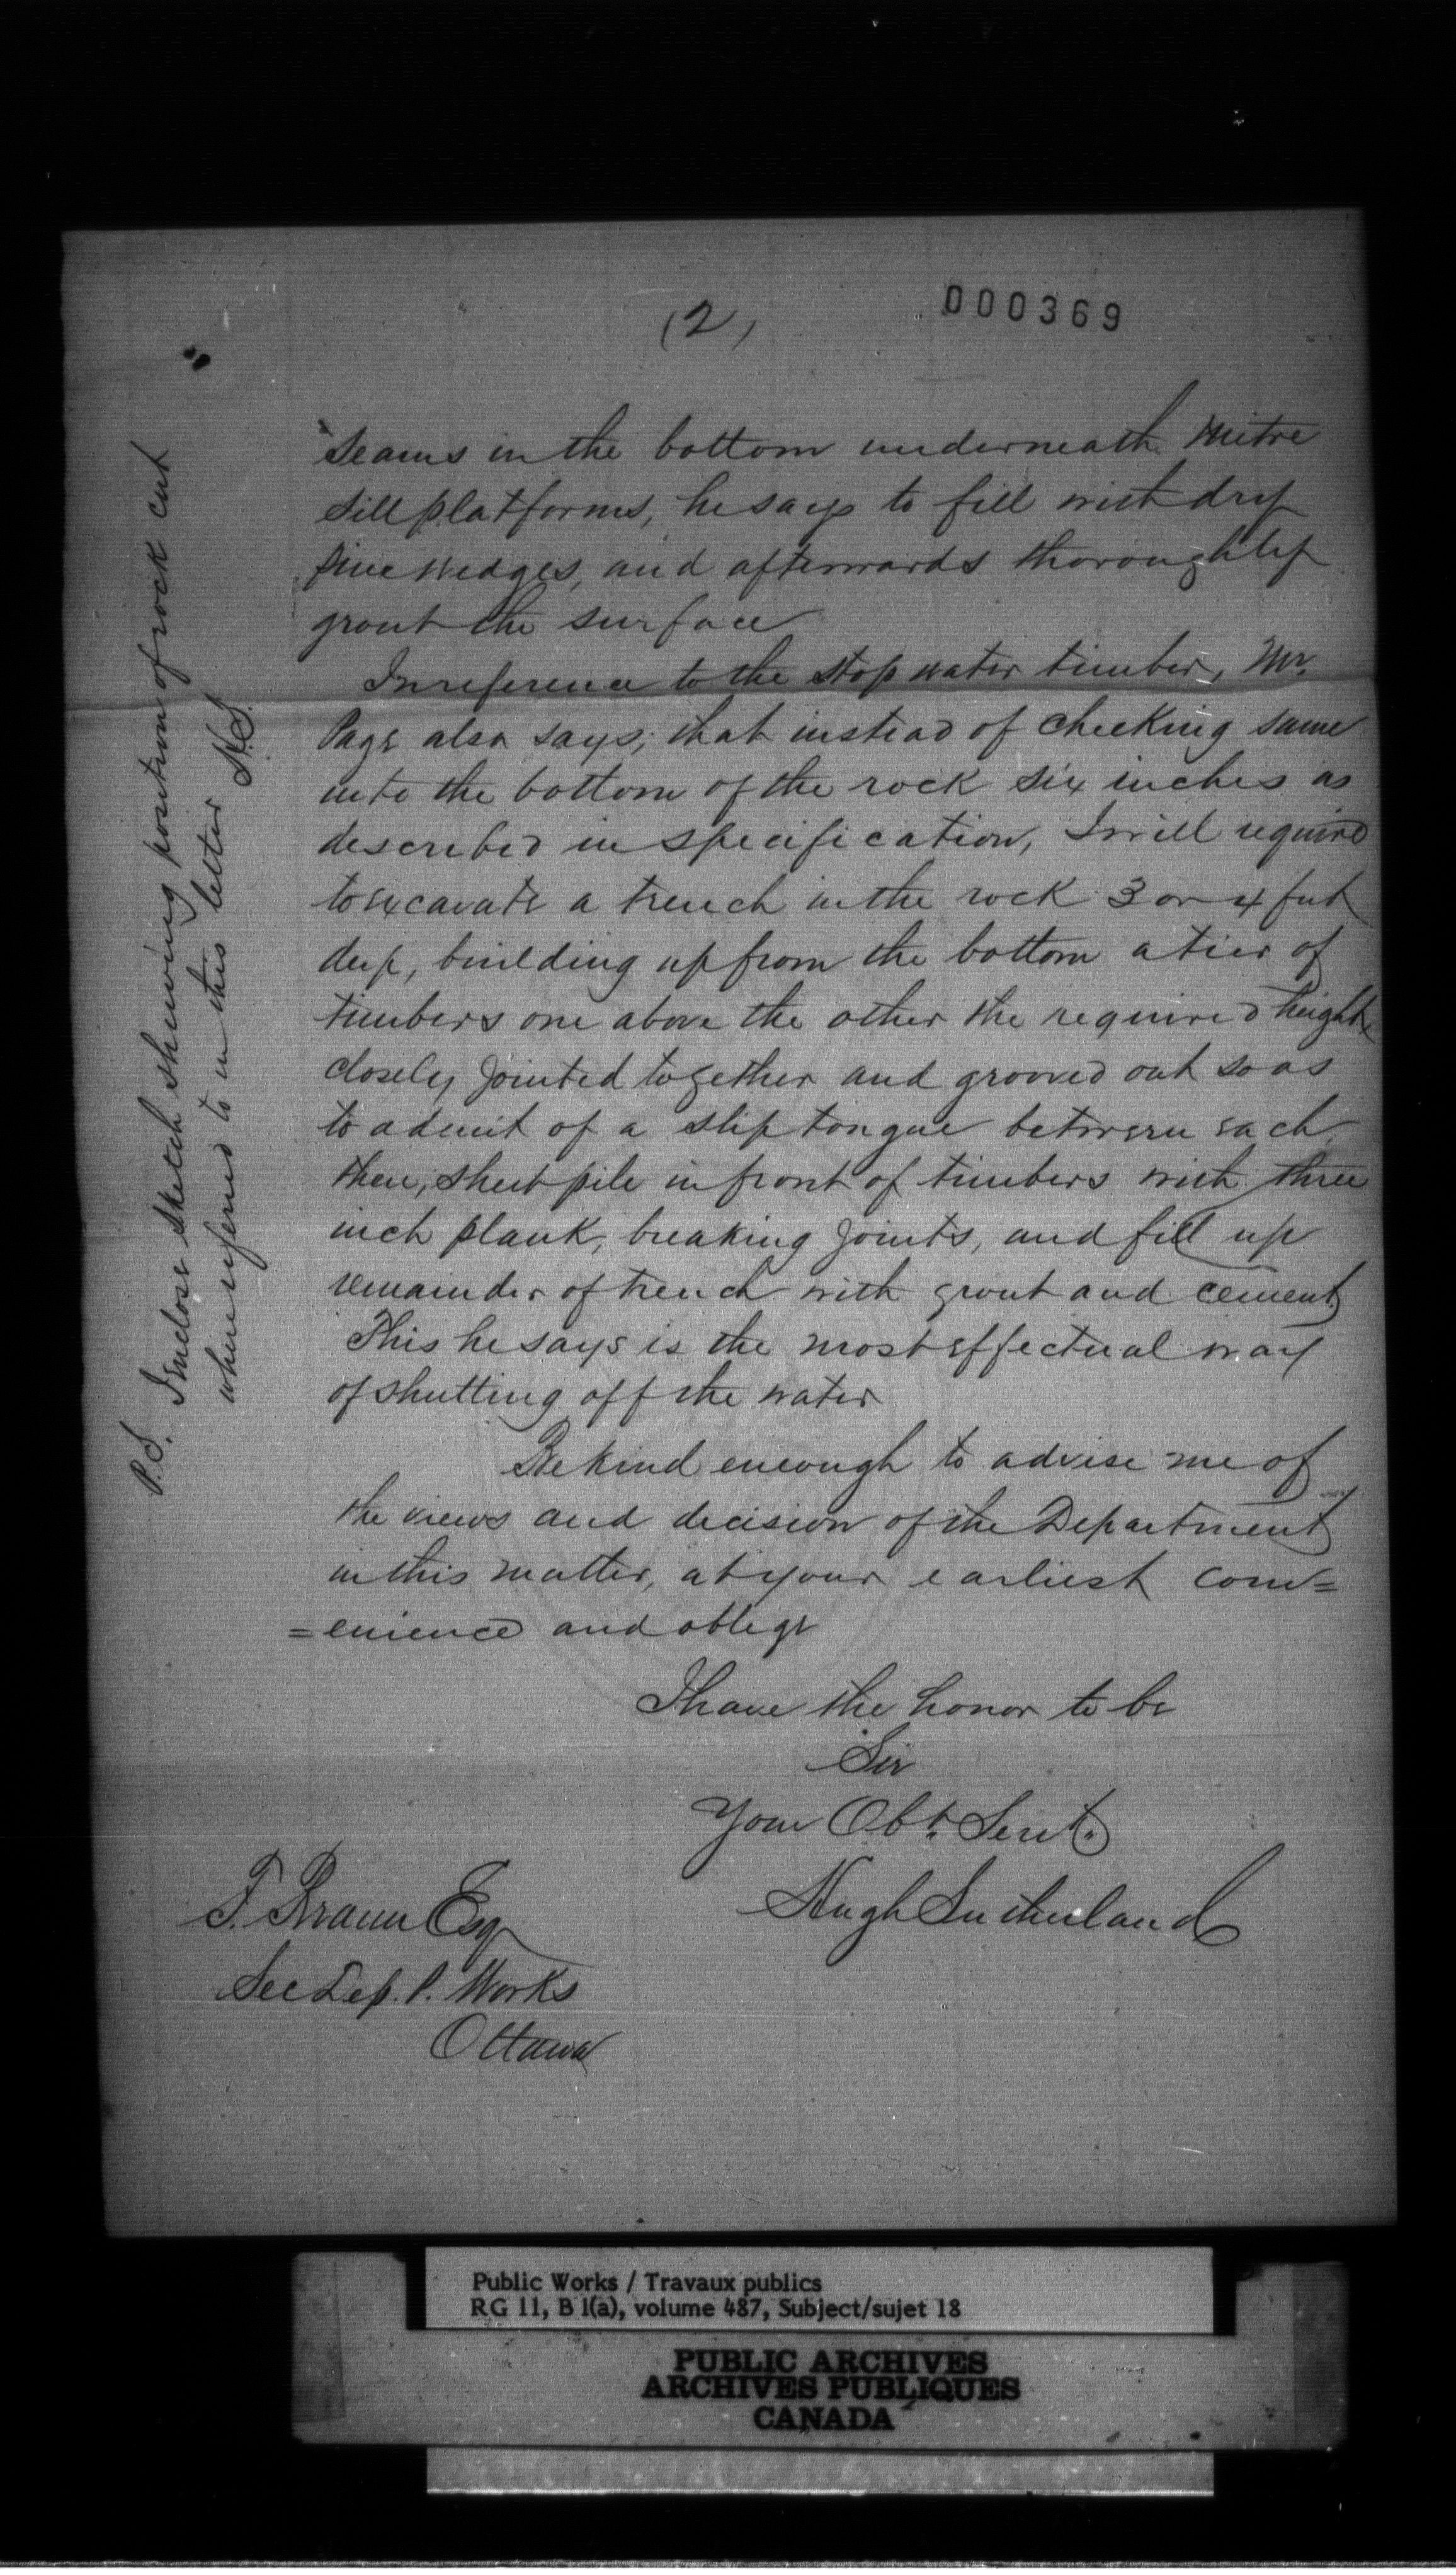 (2)
000369
Seams in the bottom underneath Mitre
Sill platforms, he says to fill with dry
pine wedges, and afterwards thoroughly
grout the surface
In reference to the stop water timber, Mr.
Page also says, that instead of checking same
into the bottom of the rock six inches as
described in specification, I will require
to excavate a trench in the rock 3 or 4 feet
deep, building up from the bottom a tier of
timbers one above the other the required height
closely jointed together and grooved out so as
to admit of a slip tongue between each
then, sheet pile in front of timbers with three
inch plank, breaking joints, and fill up
remainder of trench with grout and cement
This he says is the most effectual way
of shutting off the water
Be kind enough to advise me of
the views and decision of the Department
in this matter, at your earliest conv=
=enience and oblige
I have the honor to be
Sir
Your Obt. Servt.
Hugh Sutherland
F. Braun Esq
Sec Dep. P. Works
Ottawa
P.S. Inclose sketch shewing position of rock cut
where referred to in this letter H.S.
Public Works / Travaux publics
RG 11, B 1(a), volume 487, Subject/sujet 18
PUBLIC ARCHIVES
ARCHIVES PUBLIQUES
CANADA